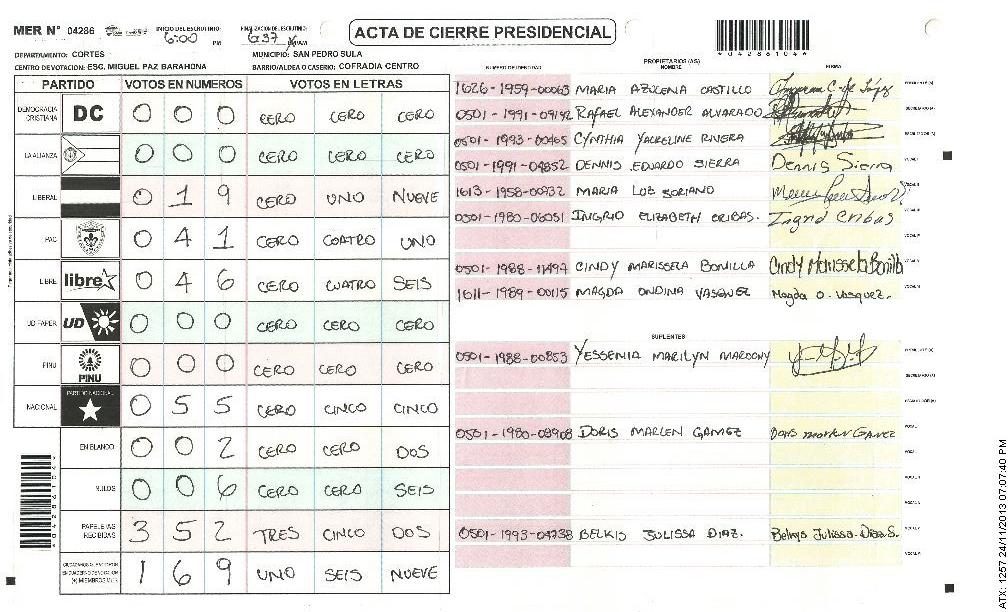 MER N° 04286 INICIO DEL ESCRUTINIO: 6:00 PM FINALIZACION DEL ESCRUTINIO: 6:37
ACTA DE CIERRE PRESIDENCIAL
*04286104*
DEPARTAMENTO: CORTES MUNICIPIO: SAN PEDRO SULA
CENTRO DE VOTACION: ESC. MIGUEL PAZ BARAHONA BARRIO/ALDEA O CASERIO: COFRADIA CENTRO
PARTIDO VOTOS EN NUMEROS VOTOS EN LETRAS
DEMOCRACIA CRISTIANA DC 0 0 0 CERO CERO CERO
LA ALIANZA 0 0 0 CERO CERO CERO
LIBERAL 0 1 9 CERO UNO NUEVE
PAC 0 4 1 CERO CUATRO UNO
LIBRE libre 0 4 6 CERO CUATRO SEIS
UD-FAPER UD 0 0 0 CERO CERO CERO
PINU PINU 0 0 0 CERO CERO CERO
NACIONAL PARTIDO NACIONAL 0 5 5 CERO CINCO CINCO
EN BLANCO 0 0 2 CERO CERO DOS
NULOS 0 0 6 CERO CERO SEIS
PAPELETAS RECIBIDAS 3 5 2 TRES CINCO DOS
1 6 9 UNO SEIS NUEVE
NUMERO DE IDENTIDAD PROPIETARIOS (AS) NOMBRE FIRMA
1626-1959-00063 MARIA AZUCENA CASTILLO
0501-1991-09142 RAFAEL ALEXANDER ALVARADO
0501-1993-00465 CYNTHIA YACKELINE RIVERA
0501-1991-04852 DENNIS EDUARDO SIERRA Dennis Sierra
1613-1958-00932 MARIA LUZ SORIANO
0501-1980-06051 INGRID ELIZABETH CRIBAS. Ingrid Cribas
0501-1988-11497 CINDY MARISSELA BONILLA Cindy Marissela Bonilla
1611-1989-00115 MAGDA ONDINA VASQUEZ Magda O. Vasquez.
SUPLENTES
0501-1988-00853 YESSENIA MARILYN MARDONY
0501-1980-08908 DORIS MARLEN GAMEZ Doris Marlen Gamez
0501-1993-04738 BELKIS JULISSA DIAZ. Belkys Julissa Diaz S.
ATX: 1257 24/11/2013 07:07:40 PM